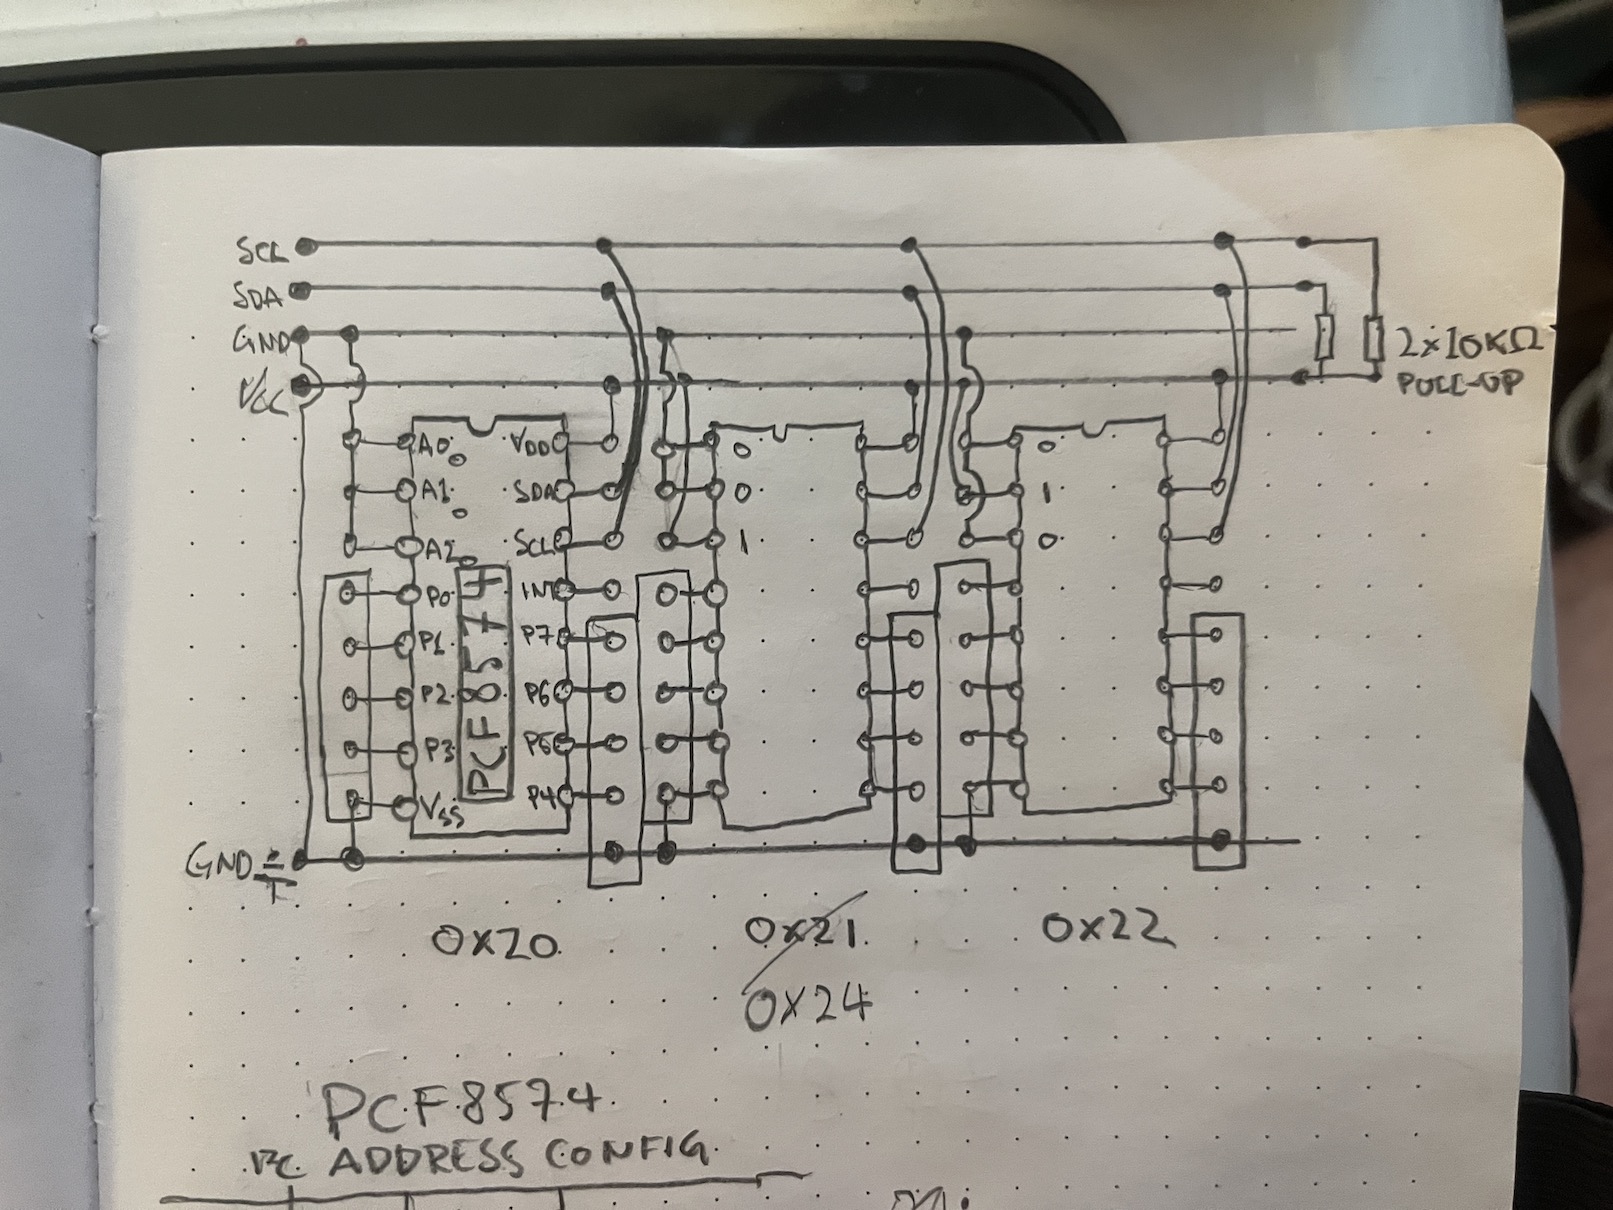 SCL
SDA
GND
VCC
2x10KΩ
PULL-UP
A0 VDD
0
A1 SDA
0
A2 SCL
0
P0 INT
P1 P7
P2 P6
P3 P5
VSS P4
PCF8574
0
0
1
0
1
0
GND
0x20 0x21 0x22
0x24
PCF8574
I2C ADDRESS CONFIG